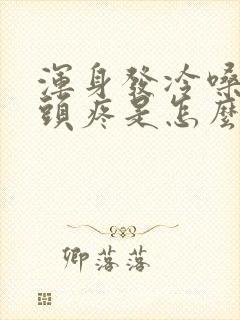 渾身發冷嗓
頭疼是怎麼
卿落落